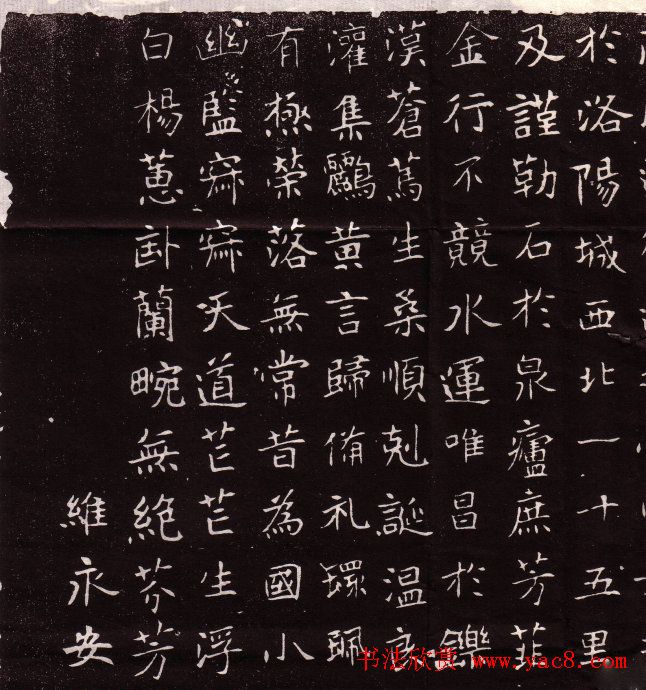 於洛陽城西北一十五里
及謹勒石於泉廬庶芳菲
金行不競水運唯昌於鑠
漠蒼篤生桑順剋誕温
灌集鸝黃言歸俻礼環珮
有極榮落無常昔為國小
幽監寂寂天道芒芒生浮
白楊蕙卧蘭畹無絕芬芳
維永安
书法欣赏 www.yac8.com